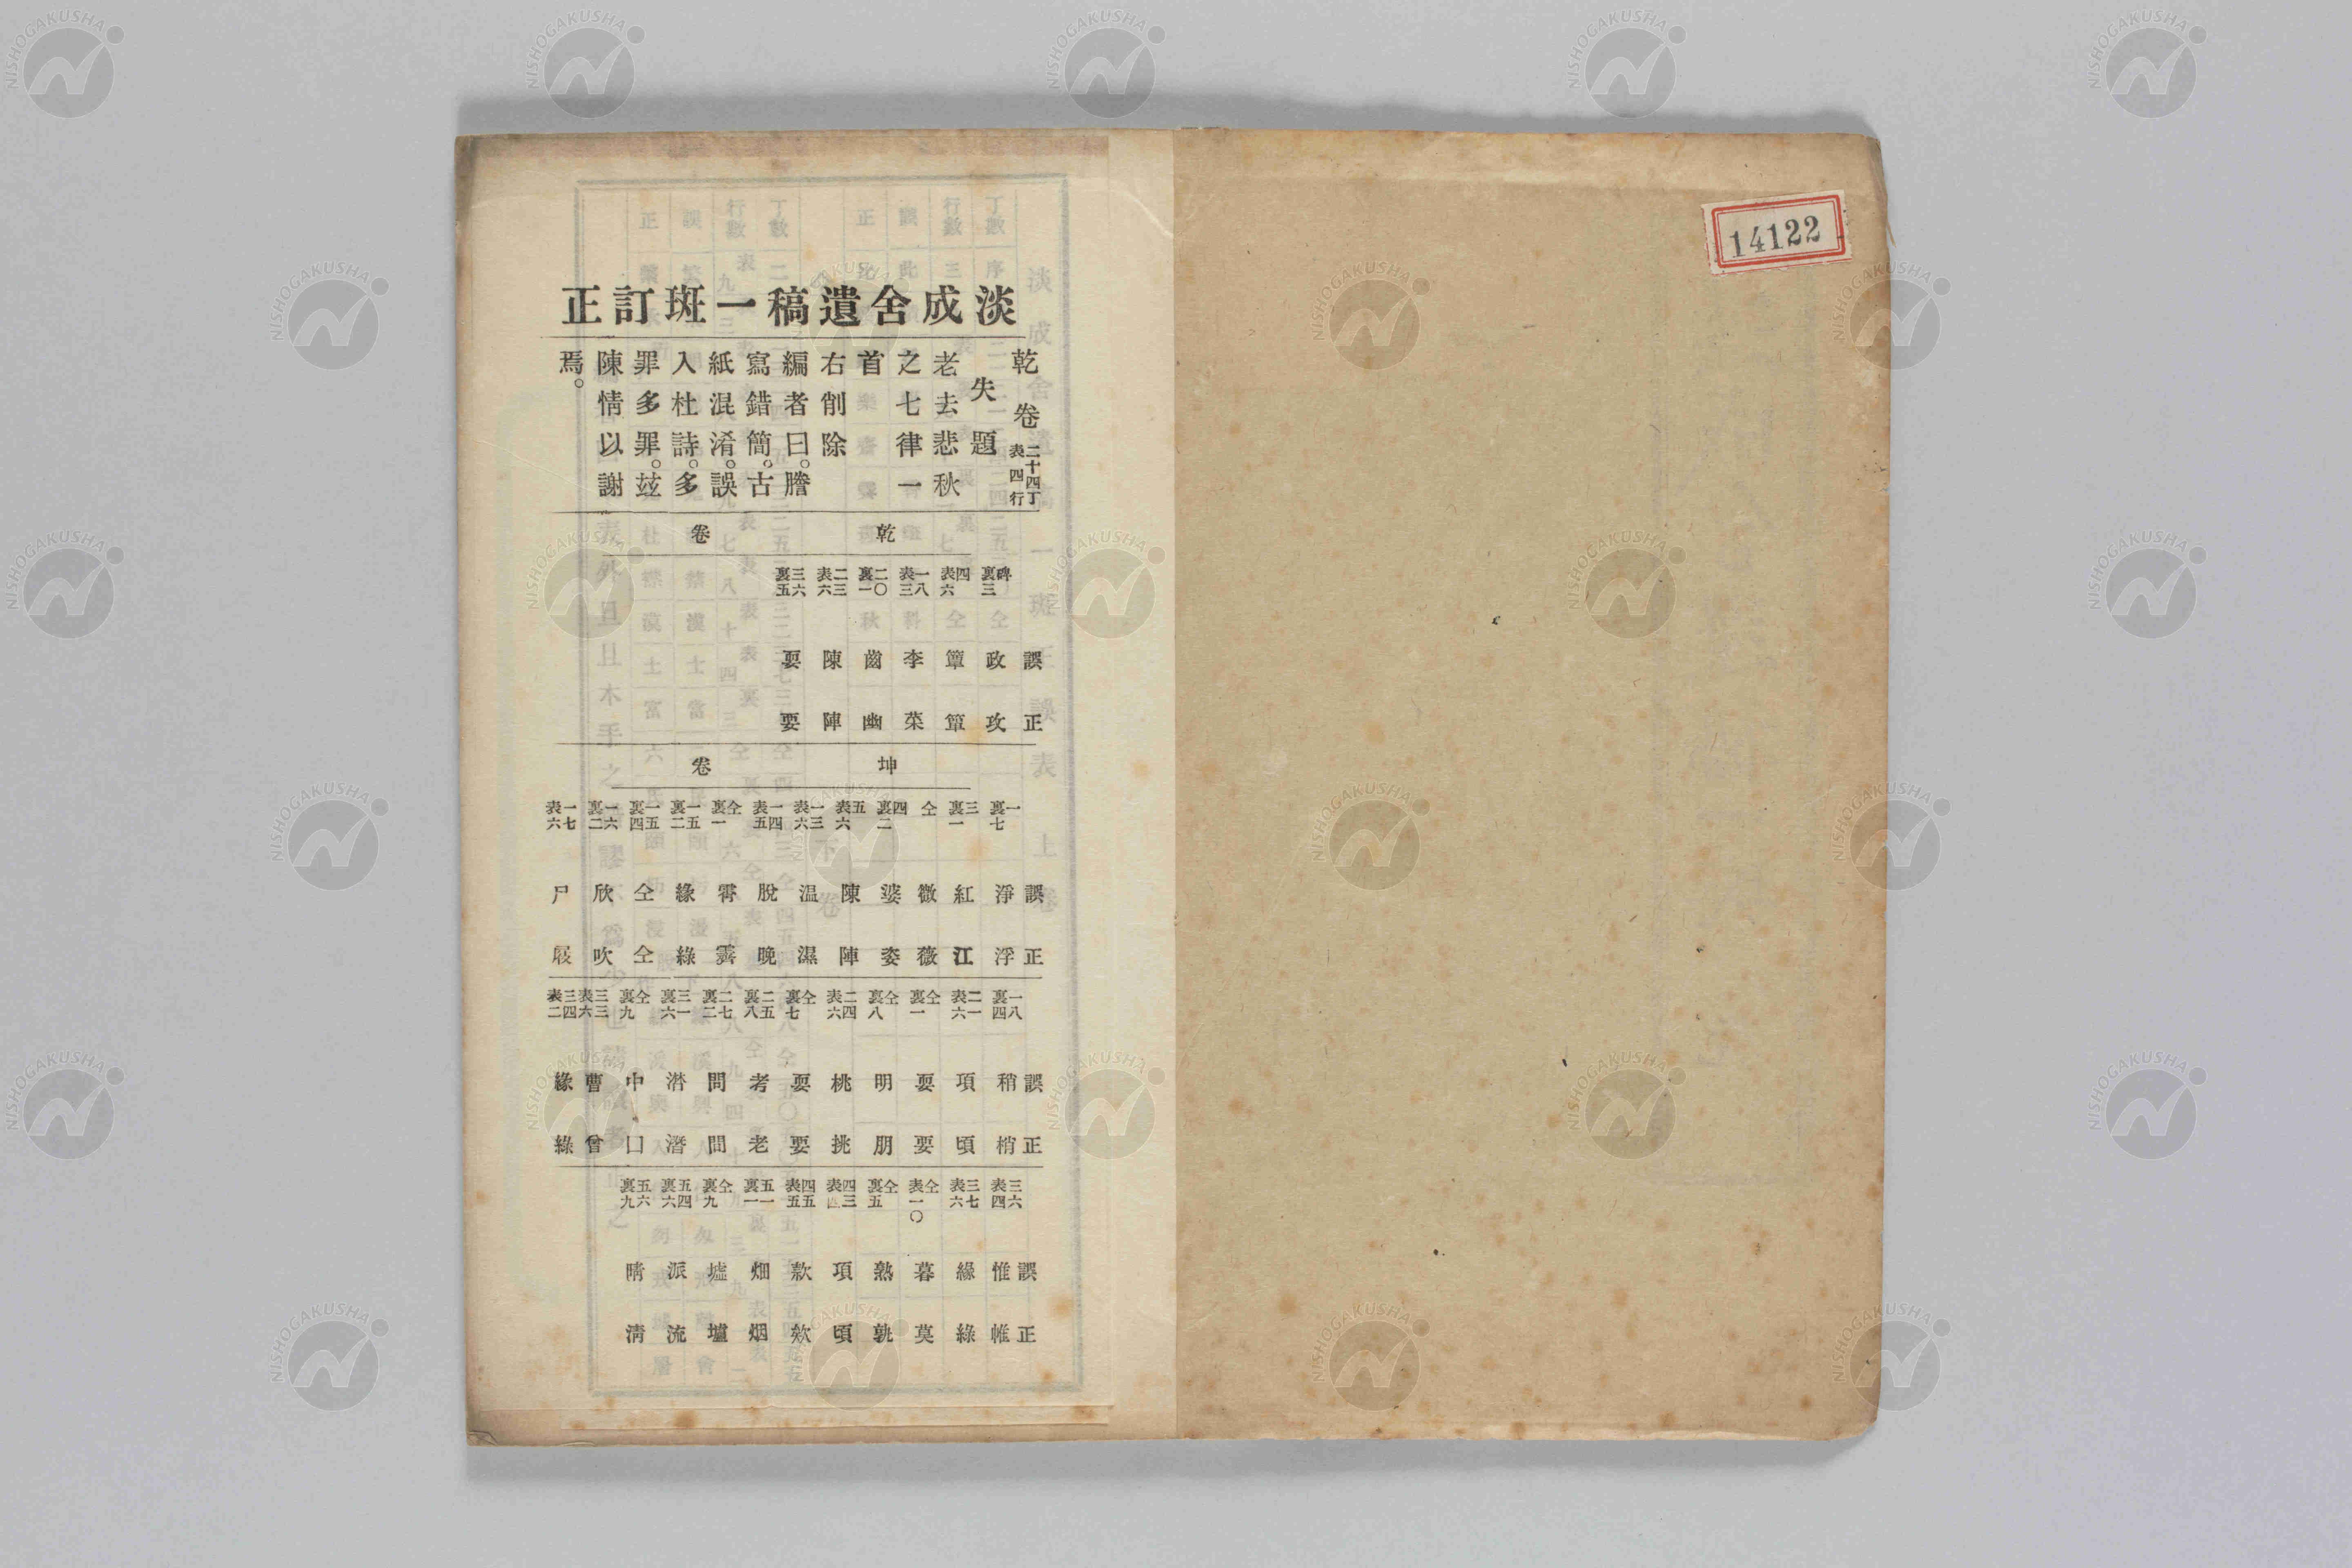 14122
淡成舍遺稿一斑訂正
乾卷 二十四丁表四行
失題
老去悲秋
之七律一
首
右削除
編者曰。謄
寫錯簡。古
紙混淆。誤
入杜詩。多
罪多罪。玆
陳情以謝
焉。
乾卷
碑裏三 四表六 一八表三 二〇裏一 二三表六 三六裏五
誤 政 簟 李 齒 陳 耍
正 攻 簞 菜 幽 陣 要
坤卷
一裏七 三裏一 仝 四裏二 五表六 一三表六 一四表五 仝裏一 一五裏二 一五裏四 一六裏二 一七表六
誤 淨 紅 微 婆 陳 温 脫 霄 緣 仝 欣 尸
正 浮 江 薇 姿 陣 濕 晚 霽 綠 仝 吹 屐
一八裏四 二一表六 仝裏一 仝裏八 二四表六 仝裏七 二五裏八 二七裏二 三一裏六 仝裏九 三三表六 三四表二
誤 稍 項 耍 明 桃 耍 考 問 潜 中 曹 緣
正 梢 頃 要 朋 挑 要 老 間 潛 口 曾 綠
三六表四 三七表六 仝表一〇 仝裏五 四三表四 四五表五 五一裏一 仝裏九 五四裏六 五六裏九
誤 惟 緣 暮 熟 項 款 畑 墟 派 晴
正 帷 綠 莫 孰 頃 欸 烟 壚 流 清